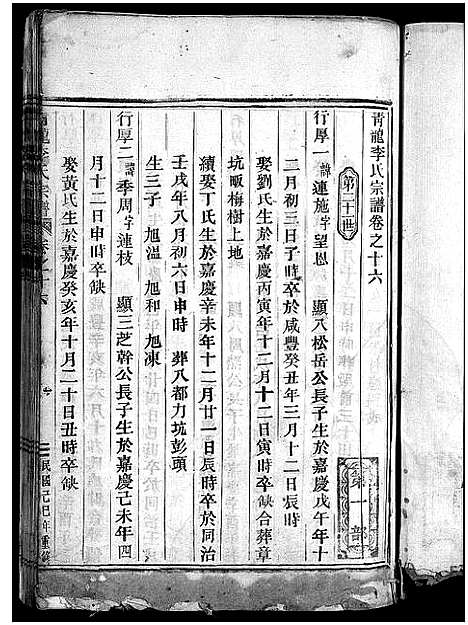 青龍李氏宗譜卷之十六
第二十世
第一部
行厚一 諱連施 字望恩 顯八松岳公長子生於嘉慶戊午年十
二月初三日子時於咸豐癸丑年三月十二日辰時
娶劉氏生於嘉慶丙寅年十二月十二日寅時卒缺合葬章
坑畈梅樹上地
續娶丁氏生於嘉慶辛未年十二月廿一日辰時卒於同治
壬戌年八月初六日申時 葬八都力坑彭頭
生三子 旭溫 旭和 旭凍
行厚二 諱季周 字連枝 顯三芝幹公長子生於嘉慶己未年四
月十二日申時卒缺
娶黃氏生於嘉慶癸亥年十月二十日丑時卒缺
龍李氏宗譜 卷之十六
民國己巳年重修